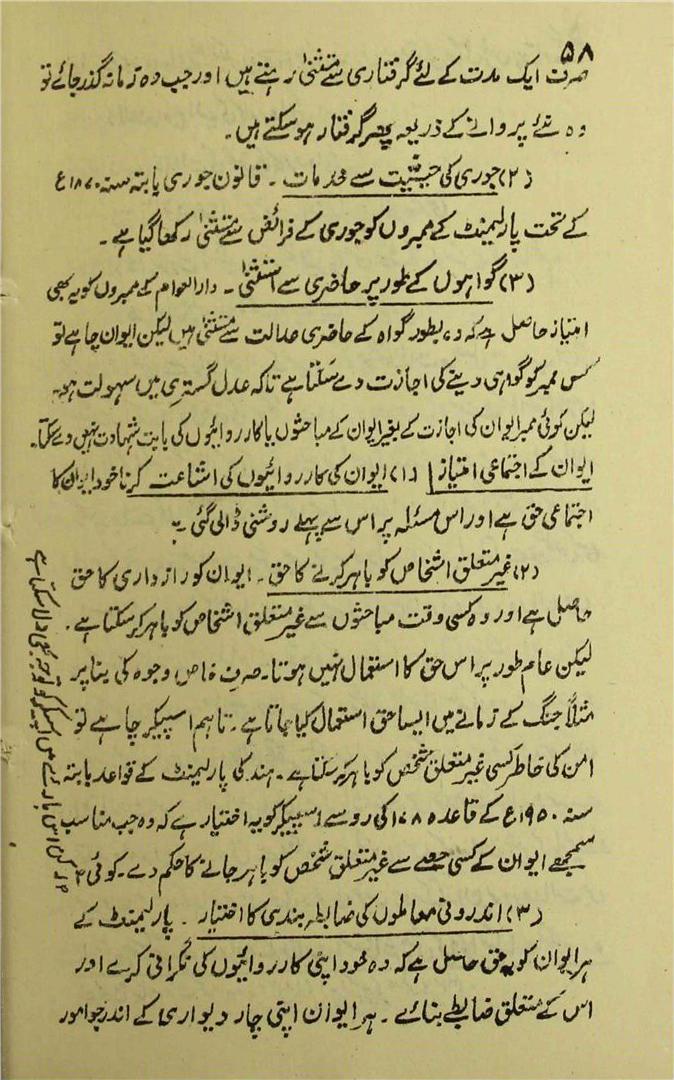 ۵۸
صرف ایک مدت کے لئے گرفتاری سے مستثنیٰ رہتے ہیں اور جب وہ زمانہ گذر جائے تو
وہ نئے پروانے کے ذریعہ پھر گرفتار ہو سکتے ہیں۔
(۲) جوری کی حیثیت سے خدمات ۔ قانون جوری بابتہ سنہ ۱۸۷۰ع
کے تحت پارلیمنٹ کے ممبروں کو جوری کے فرائض سے مستثنیٰ رکھا گیا ہے ۔
(۳) گواہوں کے طور پر حاضری سے استثنیٰ ۔ دارالعوام کے ممبروں کو یہ بھی
امتیاز حاصل ہے کہ وہ بطور گواہ کے حاضری عدالت سے مستثنیٰ ہیں لیکن ایوان چاہے تو
کسی ممبر کو گواہی دینے کی اجازت دے سکتا ہے تاکہ عدل گستری میں سہولت ہو۔
لیکن کوئی ممبر ایوان کی اجازت کے بغیر ایوان کے مباحثوں یا کارروائیوں کی بابت شہادت نہیں دے سکتا۔
ایوان کے اجتماعی امتیاز | (۱) ایوان کی کارروائیوں کی اشاعت کرنا خود ایوان کا
اجتماعی حق ہے اور اس مسئلہ پر اس سے پہلے روشنی ڈالی گئی ہے
(۲) غیر متعلق اشخاص کو باہر کرنے کا حق ۔ ایوان کو رازداری کا حق
حاصل ہے اور وہ کسی وقت مباحثوں سے غیر متعلق اشخاص کو باہر کر سکتا ہے ۔
لیکن عام طور پر اس حق کا استعمال نہیں ہوتا۔ صرف خاص وجوہ کی بنا پر
مثلاً جنگ کے زمانے میں ایسا حق استعمال کیا جاتا ہے ۔ تاہم اسپیکر چاہے تو
امن کی خاطر کسی غیر متعلق شخص کو باہر کر سکتا ہے ۔ ہند کی پارلیمنٹ کے قواعد بابتہ
سنہ ۱۹۵۰ع کے قاعدہ ۱۷۸ کی رو سے اسپیکر کو یہ اختیار ہے کہ وہ جب مناسب
سمجھے ایوان کے کسی حصے سے غیر متعلق شخص کو باہر جانے کا حکم دے ۔ کوئی
رکن اس بارے میں اسپیکر کو توجہ بھی دلا سکتا ہے
(۳) اندرونی معاملوں کی ضابطہ بندی کا اختیار ۔ پارلیمنٹ کے
ہر ایوان کو یہ حق حاصل ہے کہ وہ خود اپنی کارروائیوں کی نگرانی کرے اور
اس کے متعلق ضابطے بنائے ۔ ہر ایوان اپنی چار دیواری کے اندر جو امور